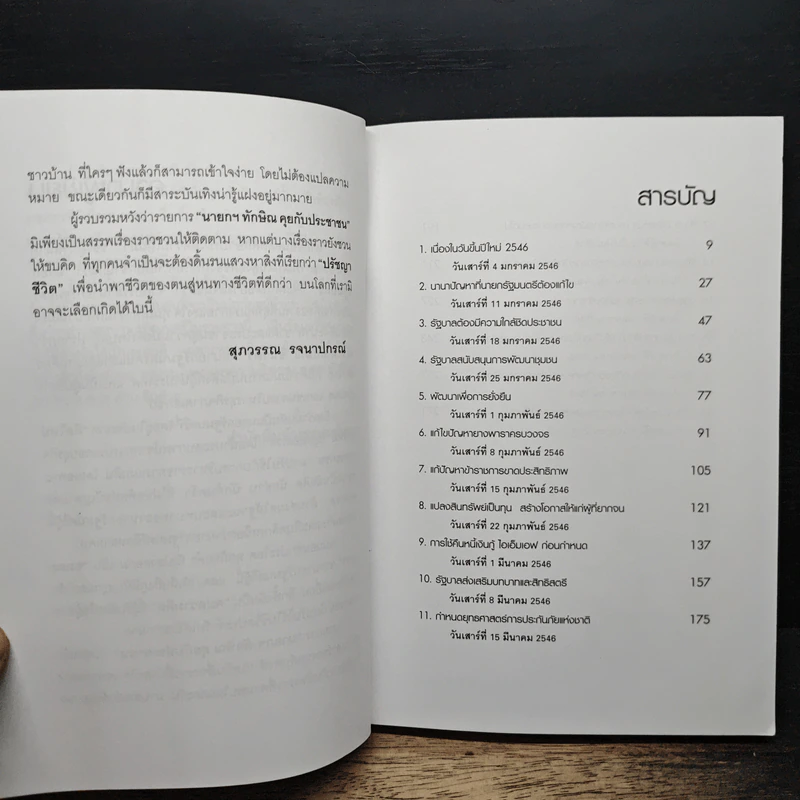 ชาวบ้าน ที่ใครๆ ฟังแล้วก็สามารถเข้าใจง่าย โดยไม่ต้องแปลความ
หมาย ขณะเดียวกันก็มีสาระบันเทิงน่ารู้แฝงอยู่มากมาย
ผู้รวบรวมหวังว่ารายการ "นายกฯ ทักษิณ คุยกับประชาชน"
มิเพียงเป็นสรรพเรื่องราวชวนให้ติดตาม หากแต่บางเรื่องราวยังชวน
ให้ขบคิด ที่ทุกคนจำเป็นจะต้องดิ้นรนแสวงหาสิ่งที่เรียกว่า "ปรัชญา
ชีวิต" เพื่อนำพาชีวิตของตนสู่หนทางชีวิตที่ดีกว่า บนโลกที่เรามิ
อาจจะเลือกเกิดได้ใบนี้
สุภวรรณ รจนาปกรณ์
สารบัญ
1. เนื่องในวันขึ้นปีใหม่ 2546 9
วันเสาร์ที่ 4 มกราคม 2546
2. นานาปัญหาที่นายกรัฐมนตรีต้องแก้ไข 27
วันเสาร์ที่ 11 มกราคม 2546
3. รัฐบาลต้องมีความใกล้ชิดประชาชน 47
วันเสาร์ที่ 18 มกราคม 2546
4. รัฐบาลสนับสนุนการพัฒนาชุมชน 63
วันเสาร์ที่ 25 มกราคม 2546
5. พัฒนาเพื่อการยั่งยืน 77
วันเสาร์ที่ 1 กุมภาพันธ์ 2546
6. แก้ไขปัญหายางพาราครบวงจร 91
วันเสาร์ที่ 8 กุมภาพันธ์ 2546
7. แก้ปัญหาข้าราชการขาดประสิทธิภาพ 105
วันเสาร์ที่ 15 กุมภาพันธ์ 2546
8. แปลงสินทรัพย์เป็นทุน สร้างโอกาสให้แก่ผู้ที่ยากจน 121
วันเสาร์ที่ 22 กุมภาพันธ์ 2546
9. การใช้คืนหนี้เงินกู้ ไอเอ็มเอฟ ก่อนกำหนด 137
วันเสาร์ที่ 1 มีนาคม 2546
10. รัฐบาลส่งเสริมบทบาทและสิทธิสตรี 157
วันเสาร์ที่ 8 มีนาคม 2546
11. กำหนดยุทธศาสตร์การประกันภัยแห่งชาติ 175
วันเสาร์ที่ 15 มีนาคม 2546